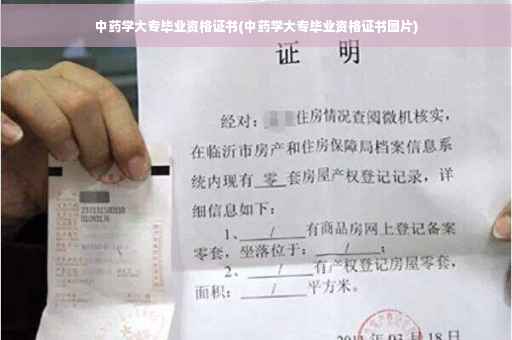 中药学大专毕业资格证书(中药学大专毕业资格证书图片)
证 明
经对：住房情况查阅微机核实，
在临沂市房产和住房保障局档案信息系
统内现有 零 套房屋产权登记记录，详
细信息如下：
1、 / 有商品房网上登记备案
零套，坐落位于： / ；
2、 / 有产权登记房屋零套，
面积： / 平方米。
月 18 日